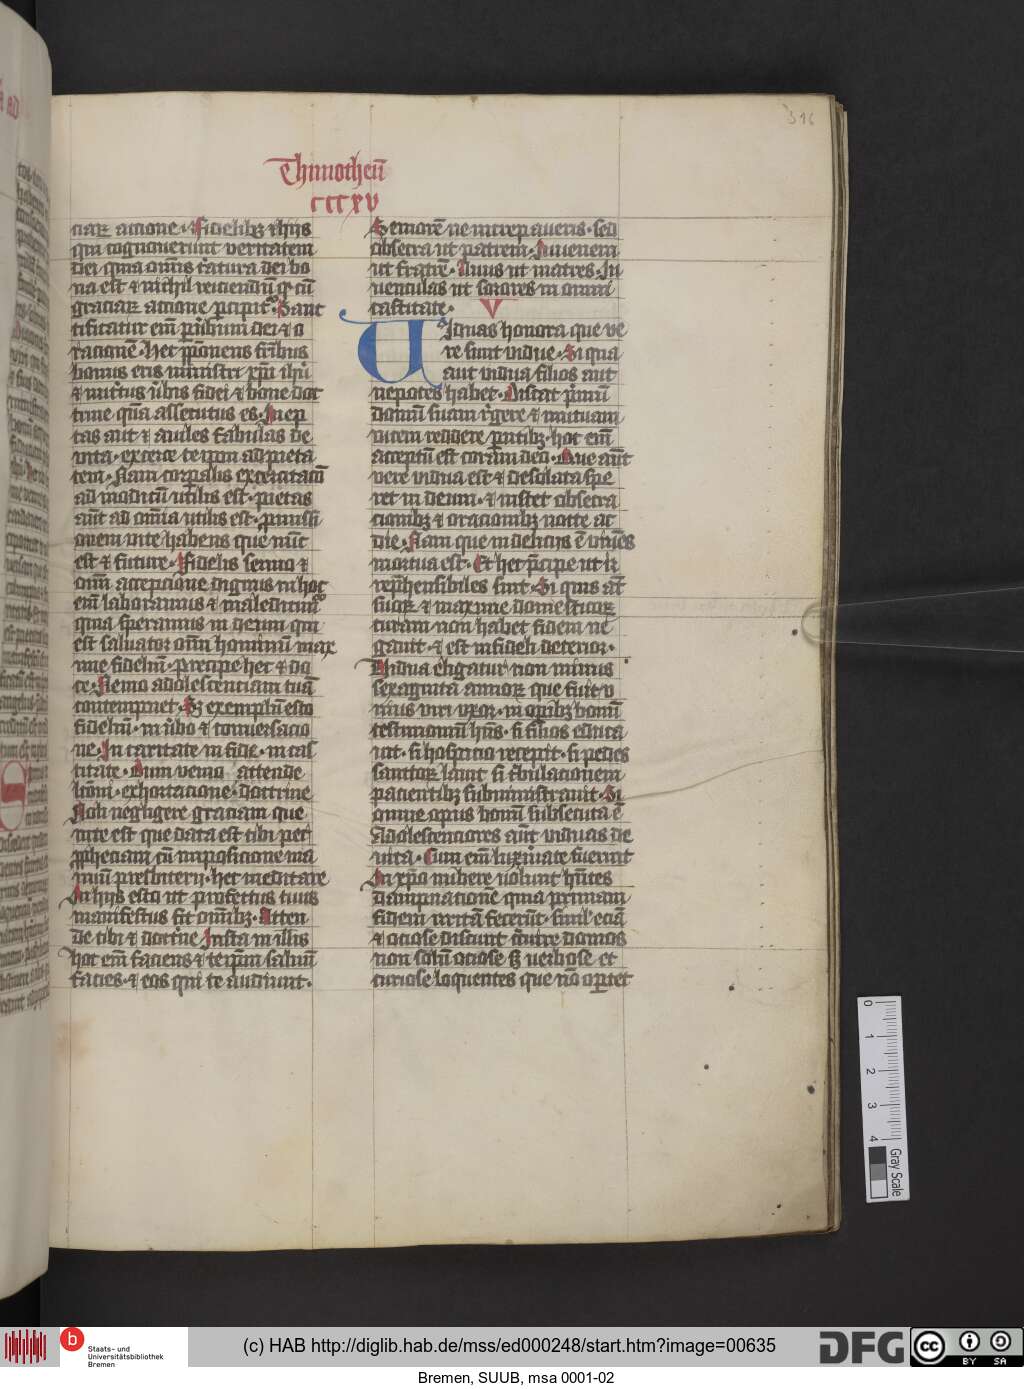 316
Thimotheū
cccxv
ciaꝝ actione · ⁊ fidelibꝫ ⁊ hijs
qui cognouerunt veritatem
dei quia om̄is c̓atura dei bo
na est ⁊ nichil reiciendū qͥ cū
graciaꝝ actione ꝑcipit᷑ · Sanc
tificatur em̄ ꝑ u̓bum dei ⁊ o
racionē · Hec ꝓponens fr̄ibus
bonus eris ministri xp̄i ihū
⁊ nut̓tus u̓bis fidei ⁊ bone doc
trine quā assecutus es · Inep
tas aut ⁊ aniles fabulas de
uita · exerce te ip̄m ad pieta
tem · Nam corꝑalis exercitacō
ad modicū utilis est · pietas
aūt ad om̄ia utilis est · ꝓmissi
onem vite habens que nūc
est ⁊ future · Fidelis sermo ⁊
om̄i accepcione dignus in hoc
em̄ laboramus ⁊ maledicim᷑
quia speramus in deum qui
est saluator om̄i hominū max
ime fideliū · precipe hec ⁊ do
ce · Nemo adolescenciam tuā
contempnet · Sꝫ exemplū esto
fideliū · in u̓bo ⁊ conuersacio
ne · In caritate in fide · in cas
titate · Dum venio attende
lc̄oni · exhortacione · doctrine
Noli negligere graciam que
in te est que data est tibi per
ꝓpheciam cū inposicione ma
nuū presbiterij · hec meditare
In hijs esto ut profectus tuus
manifestus sit om̄ibꝫ · Atten
de tibi ⁊ doct̓ne Insta in illis
hoc em̄ faciens ⁊ te ip̄m saluū
facies · ⁊ eos qui te audiunt ·
Seniorē ne increpaueris · sed
obsecra ut patrem · Iuuenem
ut fratrē · Anus ut matres · Iu
uenculas ut sorores in omni
castitate · V
Uiduas honora que ve
re sunt vidue · Si qua
aut vidua filios aut
nepotes habet · Discat pͥmū
domū suam r̓gere ⁊ mutuam
vicem reddere ꝑntibꝫ · hoc em̄
acceptū est coram deo · Que aūt
vere vidua est ⁊ desolata spe
ret in deum · ⁊ instet obsecra
cionibꝫ ⁊ oracionibꝫ nocte ac
die · Nam que in delicijs ē viuēs
mortua est · Et hec p̄cipe ut ir
rep̄hensibiles sint · Si quis aūt
suoꝝ ⁊ maxime domesticoꝝ
curam non habet fidem ne
gauit · ⁊ est infideli deterior ·
Uidua eligatur non minus
sexaginta annoꝝ que fuit v
nius viri vxor · in oꝑibꝫ bonis
testimoniū hn̄s · si filios educa
uit · si hospicio recepit · si pedes
sanctoꝝ lauit si t̓bulacionem
pacientibꝫ subministrauit · Si
omne opus bonū subsecuta ē
Adolescenciores aūt viduas de
vita · Cum em̄ luxur̓iate fuerint
In xp̄o nubere uolunt hn̄tes
dampnacionē quia primam
fidem irritā fecerūt · simul eciā
⁊ ociose discunt c̓cuire domos
non solū ociose sꝫ verbose et
curiose loquentes que nō oꝑtet
0
1
2
3
4
Gray Scale
b
Staats- und
Universitätsbibliothek
Bremen
(c) HAB http://diglib.hab.de/mss/ed000248/start.htm?image=00635
DFG
cc
BY SA
Bremen, SUUB, msa 0001-02